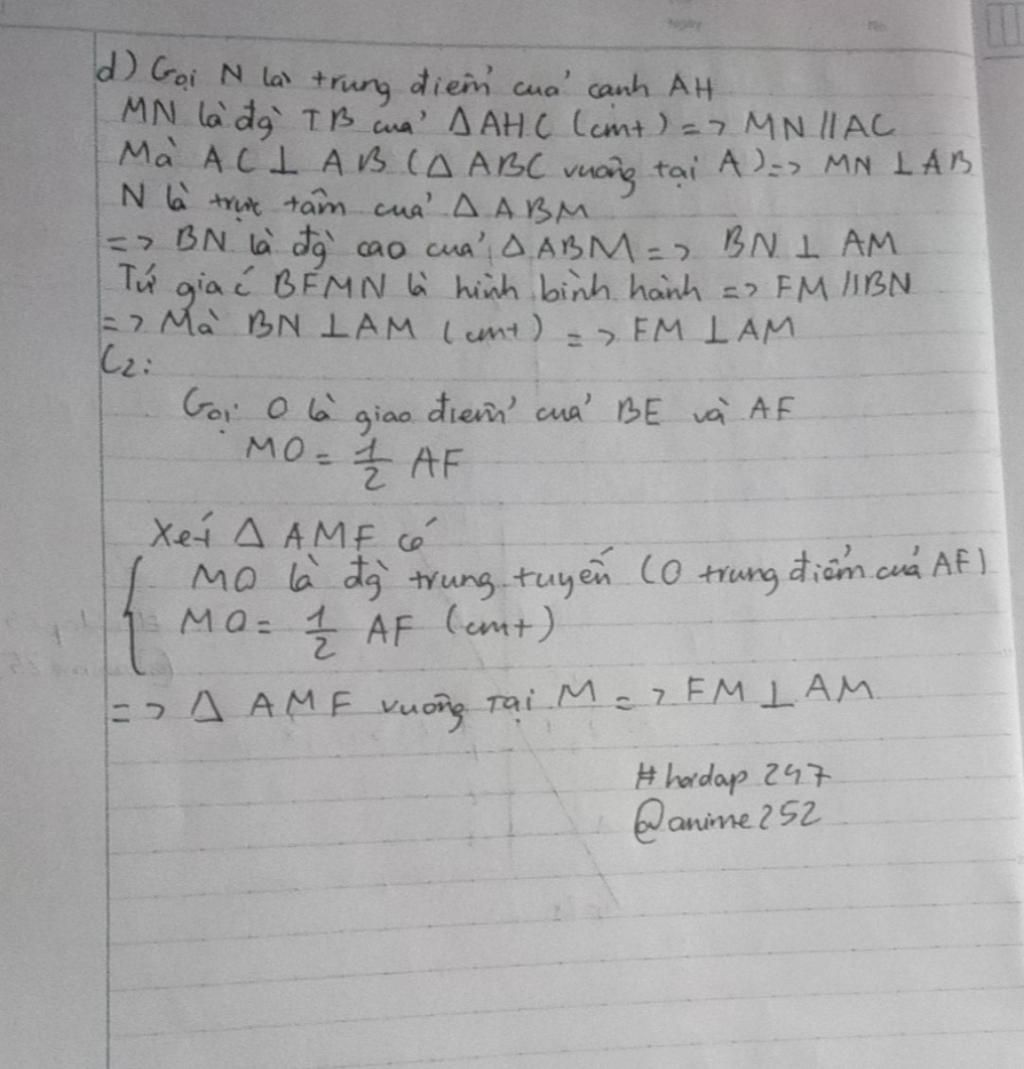 Ngày
No.
d) Gọi N là trung điểm của cạnh AH
MN là đg̀ TB của Δ AHC (cmt) => MN // AC
Mà AC ⊥ AB (Δ ABC vuông tại A) => MN ⊥ AB
N là trực tâm của Δ ABM
=> BN là đg̀ cao của Δ ABM => BN ⊥ AM
Tứ giác BFMN là hình bình hành => FM // BN
=> Mà BN ⊥ AM (cmt) => FM ⊥ AM
C2:
Gọi O là giao điểm của BE và AF
MO = 1/2 AF
Xét Δ AMF có
{ MO là đg̀ trung tuyến (O trung điểm của AF)
MO = 1/2 AF (cmt)
=> Δ AMF vuông tại M => FM ⊥ AM
# hoidap 247
@anime252